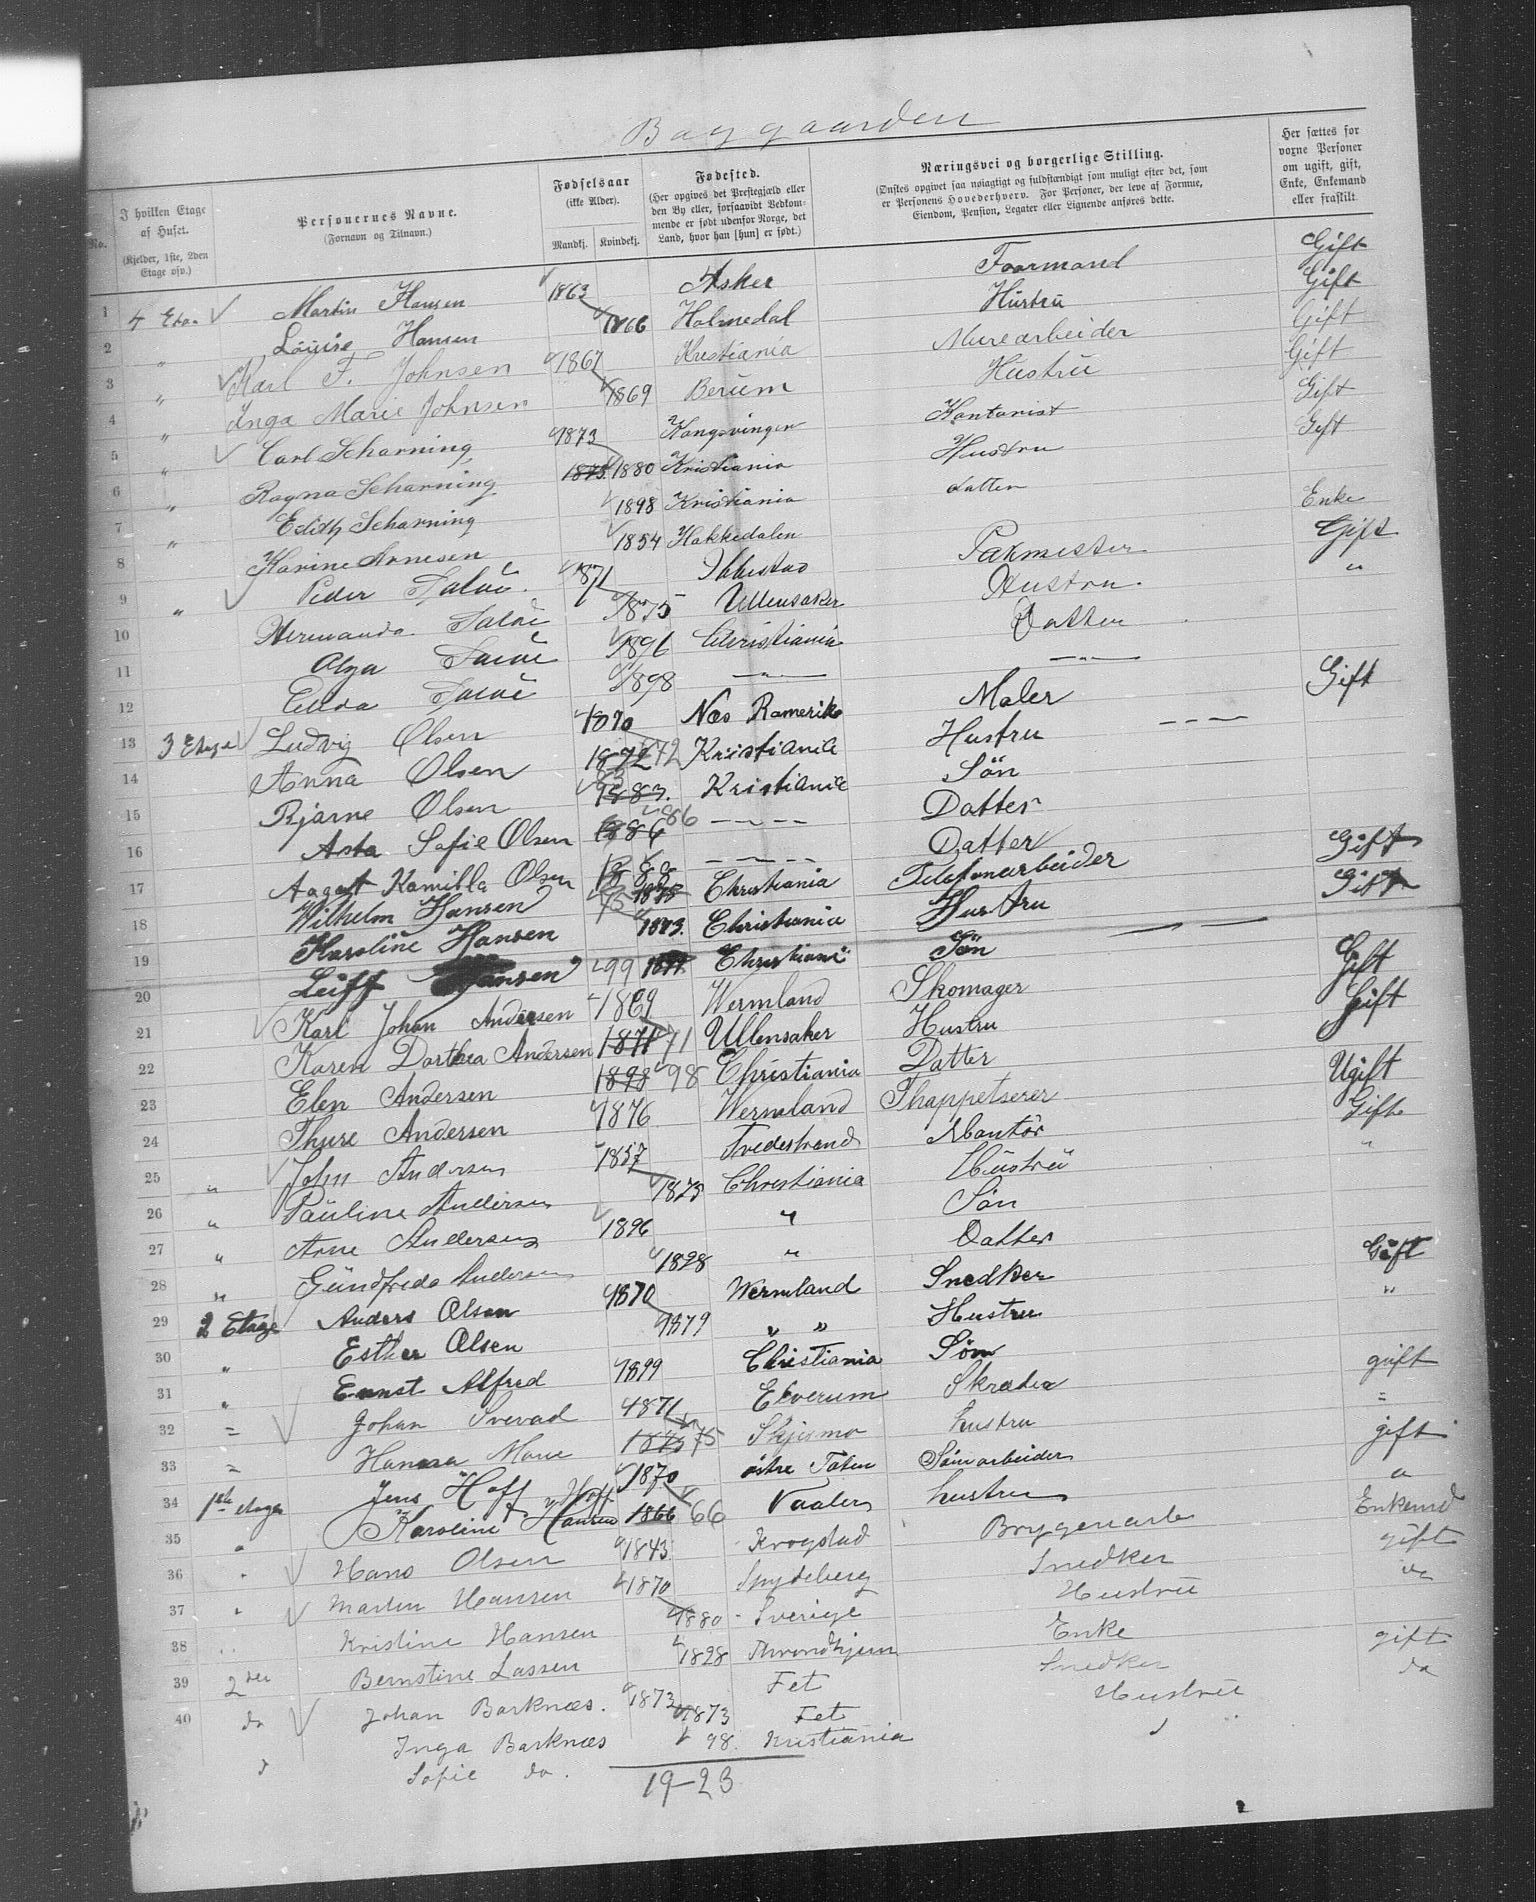 Baggaarden
No.
I hvilken Etage af Huset. (Kjelder, 1ste, 2den Etage osv.)
Personernes Navne. (Fornavn og Tilnavn.)
Fødselsaar (ikke Alder). Mandkj. Kvindekj.
Fødested. (Her opgives det Prestegjæld eller den By eller, forsaavidt Vedkommende er født udenfor Norge, det Land, hvor han [hun] er født.)
Næringsvei og borgerlige Stilling. (Ønskes opgivet saa nøiagtigt og fuldstændigt som muligt efter det, som er Personens Hovederhverv. For Personer, der leve af Formue, Eiendom, Pension, Legater eller Lignende anføres dette.
Her sættes for voxne Personer om ugift, gift, Enke, Enkemand eller fraskilt.
1 4 Eta. Martin Hansen 1863 Asker Foormand Gift
2 " Louise Hansen 1866 Holmedal Hustru Gift
3 " Karl F. Johnsen 1867 Kristiania Murearbeider Gift
4 " Inga Marie Johnsen 1869 Berum Hustru Gift
5 " Carl Scharning 1873 Kongsvinger Kontorist Gift
6 " Ragna Scharning 1875 1880 Kristiania Hustru Gift
7 " Edith Scharning 1898 Kristiania datter
8 Karine Arnesen 1854 Hakkedalen Enke
9 " Peder Salöe 1871 Ibbestad Pakmester Gift
10 Hermanda Saloe 1875 Ullensaker Hustru "
11 Olga Saloe 1896 Christiania Datter
12 Ellida Saloe 1898 — " — — " —
13 3 Etage Ludvig Olsen 1870 Nes Romerike Maler Gift
14 Anna Olsen 1872 72 Kristiania Hustru - - -
15 Bjarne Olsen 1883. 83 Kristiania Sön
16 Asta Sofie Olsen 1886 86 - - - - Datter
17 Aagot Kamilla Olsen 1888 - - - - Datter
18 Wilhelm Hansen 1875 75 Christiania Telefonarbeider Gift
19 Karoline Hansen 1873. Christiania Hustru Gift
20 Leiff Hansen 99 1899 Christiania Sön
21 Karl Johan Andersen 1869 Wermland Skomager Gift
22 Karen Dorthea Andersen 1871 71 Ullensaker Hustru Gift
23 Elen Andersen 1898 98 Christiania Datter
24 Thure Andersen 1876 Wermland Thappetserer Ugift
25 " John Andersen 1857 Tvedestrand Montör Gift
26 " Pauline Andersen 1875 Christiania Hustru "
27 " Arne Andersen 1896 " Sön
28 " Gundfreda Andersen 1898 " Datter
29 2 Etage Anders Olsen 1870 Wermland Snedker Gift
30 " Esther Olsen 1879 " " Hustru "
31 " Ernst Alfred 1899 Christiania Søn
32 = Johan Svevad 1871 Elverum Skræder gift
33 = Hanna Marie 1875 75 Skjesmo hustru =
34 1ste etage Jens Hoff 1870 östre Toten Sömarbeider gift
35 " Karoline Hansen Hoff 1866 66 Vaaler hustru "
36 " Hans Olsen 1843 Krogstad Bryggenarb Enkemd
37 " Martin Hansen 1870 Spydeberg Snedker gift
38 .. Kristine Hansen 1880 - Sverige Hustru do
39 2den Bernstine Lassen 1828 Throndhjem Enke
40 do Johan Barknæs. 1873 Fet Snedker gift
Inga Barknæs 1873 Fet Hustru do
d Sofie do. 98. Kristiania
19-23